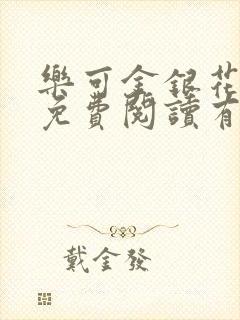 樂可金銀花
免費閱讀有
戴金發